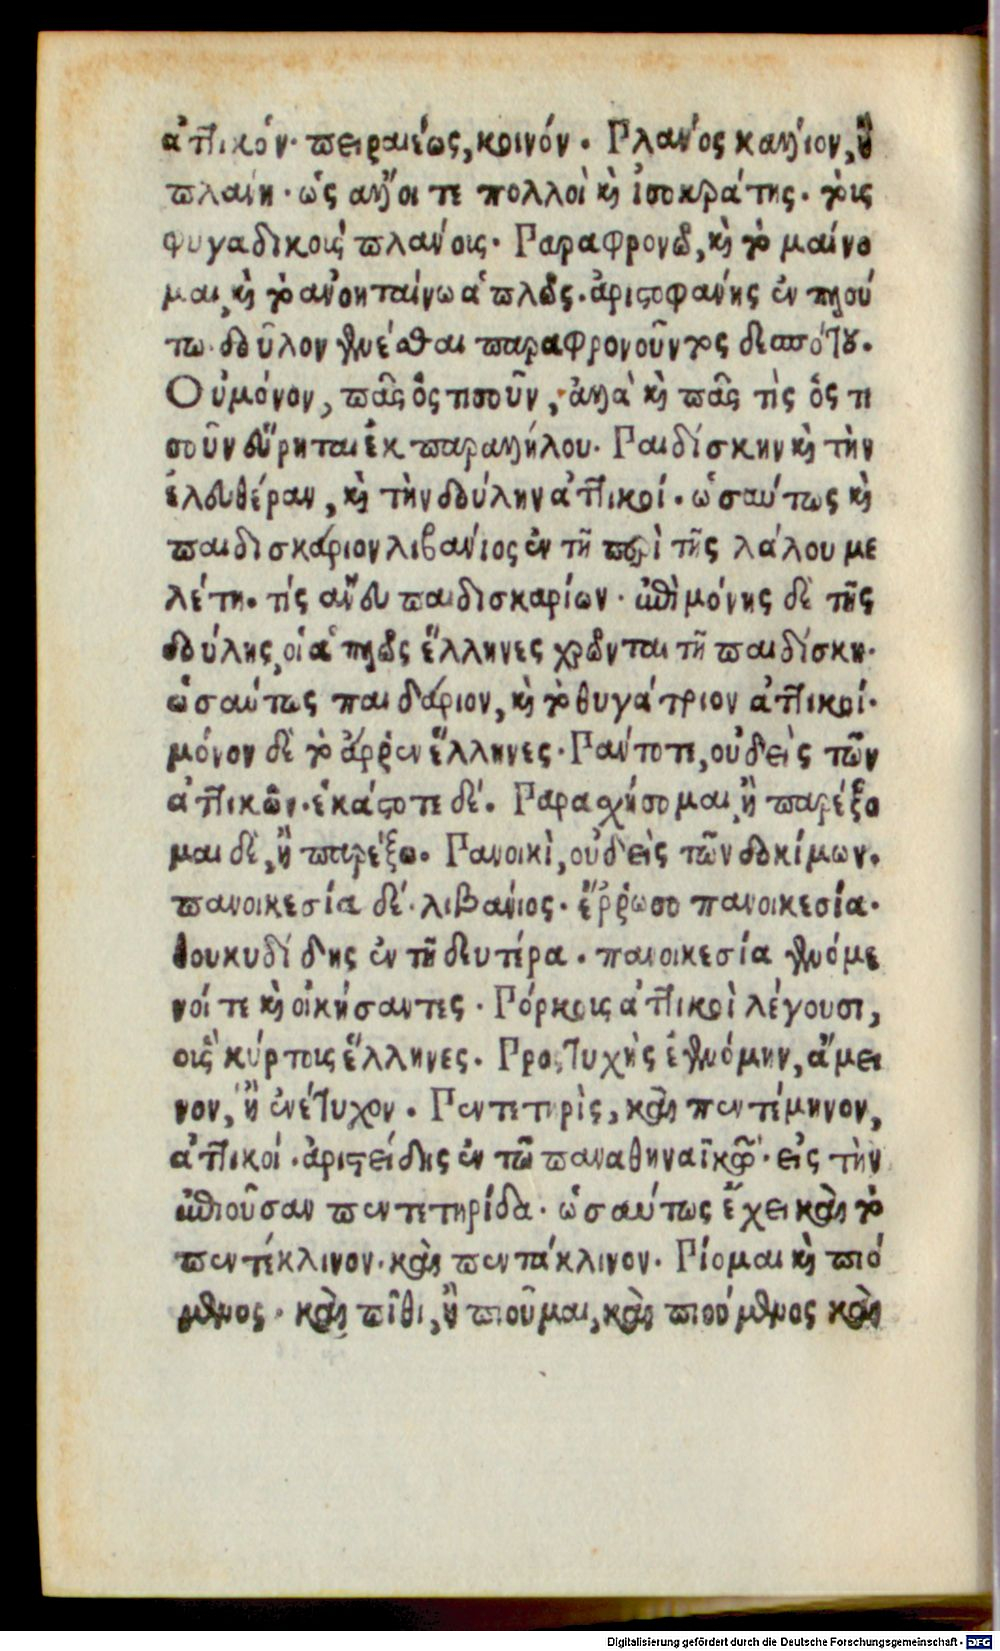 ἀττικόν. πειραιέως, κοινόν. Πλάνος κάλλιον, ἢ
πλάνη. ὡς ἄλλοι τε πολλοὶ καὶ ἰσοκράτης. τοῖς
φυγαδικοῖς πλάνοις. Παραφρονῶ, καὶ τὸ μαίνο
μαι, καὶ τὸ ἀνοηταίνω ἁπλῶς. ἀριστοφάνης ἐν πλού
τω. δοῦλον γενέσθαι παραφρονοῦντος δεσπότου.
Οὐ μόνον, πᾶς ὅς τις οὖν, ἀλλὰ καὶ πᾶς τὶς ὅς τι
σοῦν εὕρηται ἐκ παραλλήλου. Παιδίσκην καὶ τὴν
ἐλευθέραν, καὶ τὴν δούλην ἀττικοί. ὡσαύτως καὶ
παιδισκάριον λιβάνιος ἐν τῇ περὶ τῆς λάλου με
λέτη. τίς ἄνευ παιδισκαρίων. ἐπὶ μόνης δὲ τῆς
δούλης, οἱ ἁπλῶς ἕλληνες χρῶνται τῇ παιδίσκη.
ὡσαύτως παιδάριον, καὶ τὸ θυγάτριον ἀττικοί.
μόνον δὲ τὸ ἄῤῥεν ἕλληνες. Πάντοτε, οὐδεὶς τῶν
ἀττικῶν. ἑκάστοτε δέ. Παρασχήσομαι, ἢ παρέξο
μαι δὲ, ἢ παρέξω. Πανοικὶ, οὐδεὶς τῶν δοκίμων.
πανοικεσία δέ. λιβάνιος. ἔῤῥωσο πανοικεσία.
θουκυδίδης ἐν τῇ δευτέρα. πανοικεσία γενόμε
νοί τε καὶ οἰκήσαντες. Πόρκοις ἀττικοὶ λέγουσι,
οἷς κύρτοις ἕλληνες. Προστυχὴς ἐγενόμην, ἄμει
νον, ἢ ἐνέτυχον. Πεντετηρὶς, καὶ πεντέμηνον,
ἀττικοί. ἀριστείδης ἐν τῷ παναθηναϊκῷ. εἰς τὴν
ἐπιοῦσαν πεντετηρίδα. ὡσαύτως ἔχει καὶ τὸ
πεντέκλινον. καὶ πεντάκλινον. Πίομαι καὶ πιό
μενος. καὶ πῖθι, ἢ πιοῦμαι, καὶ πιούμενος καὶ
Digitalisierung gefördert durch die Deutsche Forschungsgemeinschaft - DFG